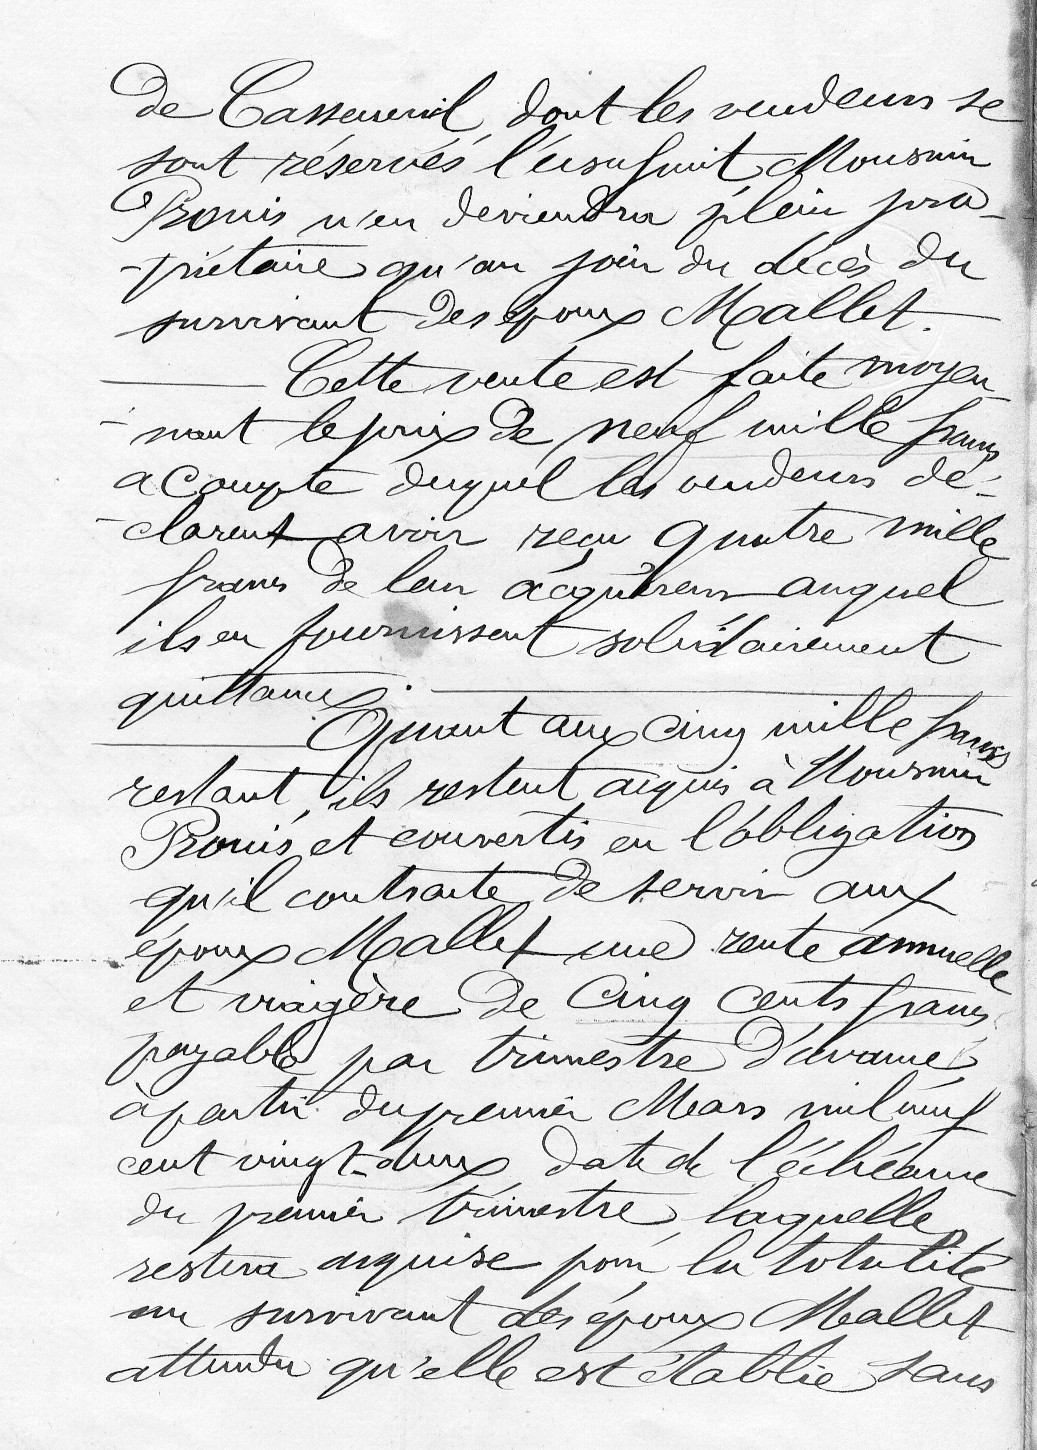 de Casseneuil, dont les vendeurs se
sont réservés l'usufruit, Monsieur
Prouis n'en deviendra plein pro-
-priétaire qu'au jour du décès du
survivant des époux Mallet.
Cette vente est faite moyen-
-nant le prix de neuf mille francs
a compte duquel les vendeurs dé-
-clarent avoir reçu quatre mille
francs de leur acquéreur auquel
ils en fournissent solidairement
quittance.
Quant aux cinq mille francs
restant, ils restent acquis à Monsieur
Prouis, et convertis en l'obligation
qu'il contracte de servir aux
époux Mallet une rente annuelle
et viagère de Cinq cents francs
payable par trimestre d'avance
à partir du premier Mars mil neuf
cent vingt-deux, date de l'échéance
du premier trimestre, laquelle
restera acquise pour la totalité
au survivant des époux Mallet
attendu qu'elle est établie sans